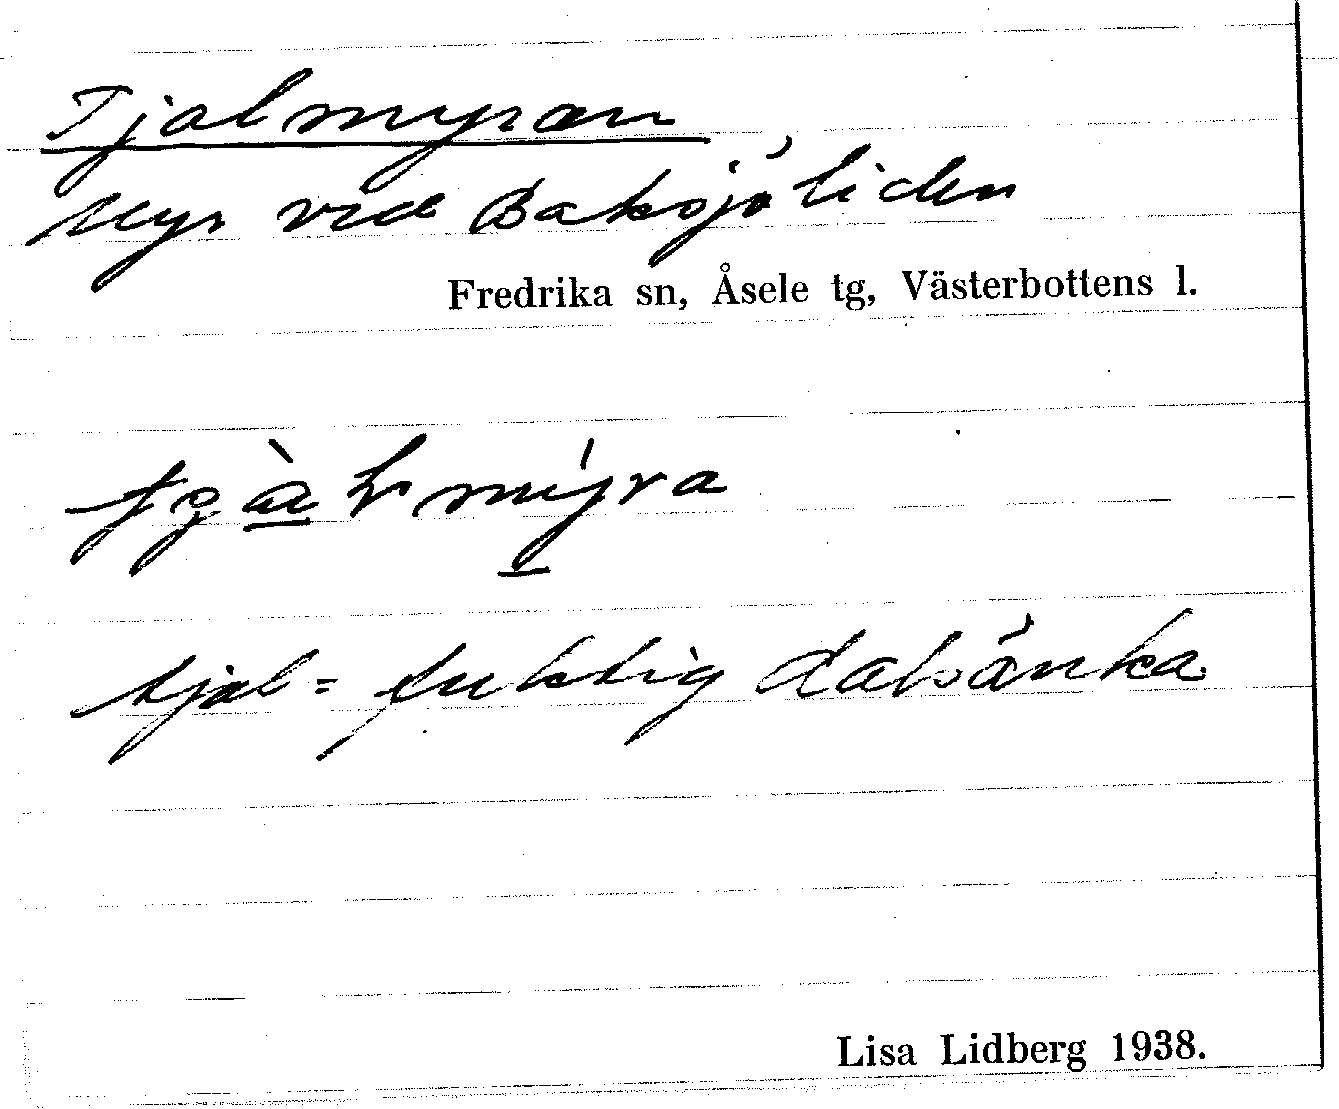 Tjalmyran
Myr vid Baksjöliden
Fredrika sn, Åsele tg, Västerbottens l.
tjal = fuktig dalsänka
Lisa Lidberg 1938.